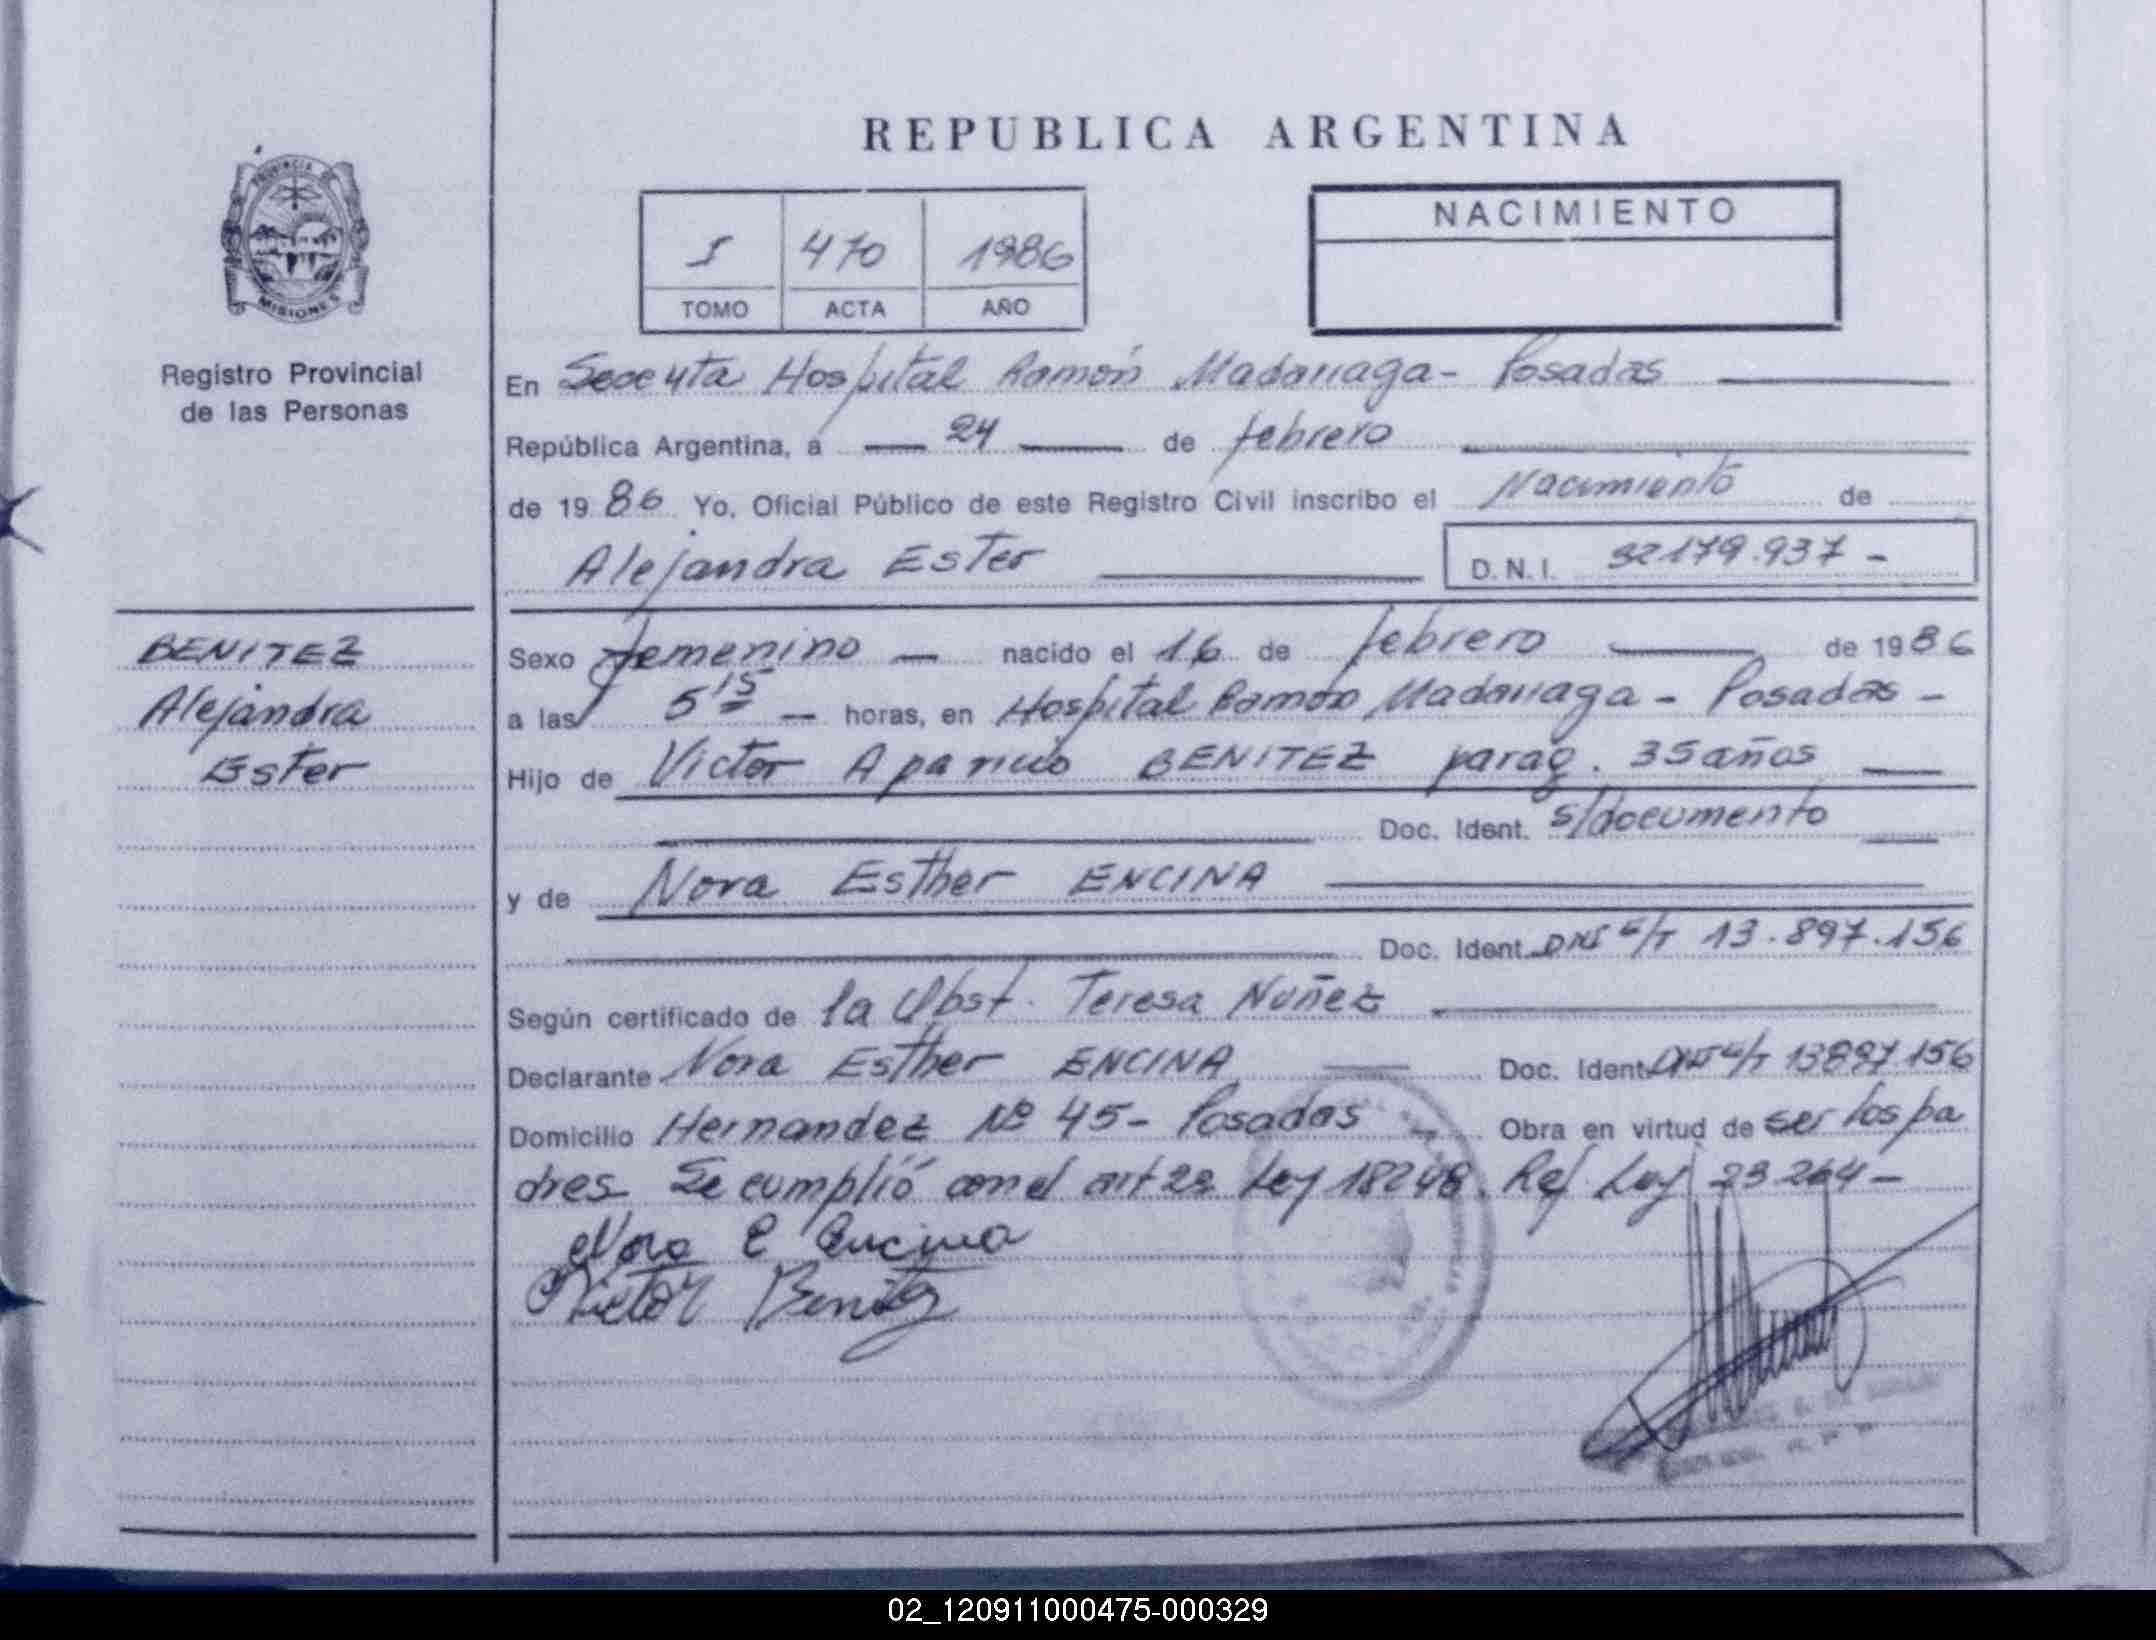 REPUBLICA ARGENTINA
PROVINCIA DE
MISIONES
Registro Provincial
de las Personas
470 1986
TOMO ACTA AÑO
NACIMIENTO
En Hospital Ramón Madariaga - Posadas
República Argentina, a 24 de febrero
de 1986 Yo, Oficial Público de este Registro Civil inscribo el Nacimiento de
Alejandra Ester D.N.I. 32179.937 -
BENITEZ
Alejandra
Ester
Sexo femenino nacido el 16 de febrero de 1986
a las 5 15 horas, en Hospital Ramon Madariaga - Posadas -
Hijo de Victor Aparicio BENITEZ parag. 35 años
Doc. Ident. s/documento
y de Nora Esther ENCINA
Doc. Ident. DNI 13.897.156
Según certificado de la Obst. Teresa Nuñez
Declarante Nora Esther ENCINA Doc. Ident. 13897156
Domicilio Hernandez Nº 45 - Posadas - Obra en virtud de ser los pa
dres Se cumplió con el art 2º Ley 18248. Ref. Ley 23264 -
Nora E Encina
Victor Benitez
02_120911000475-000329